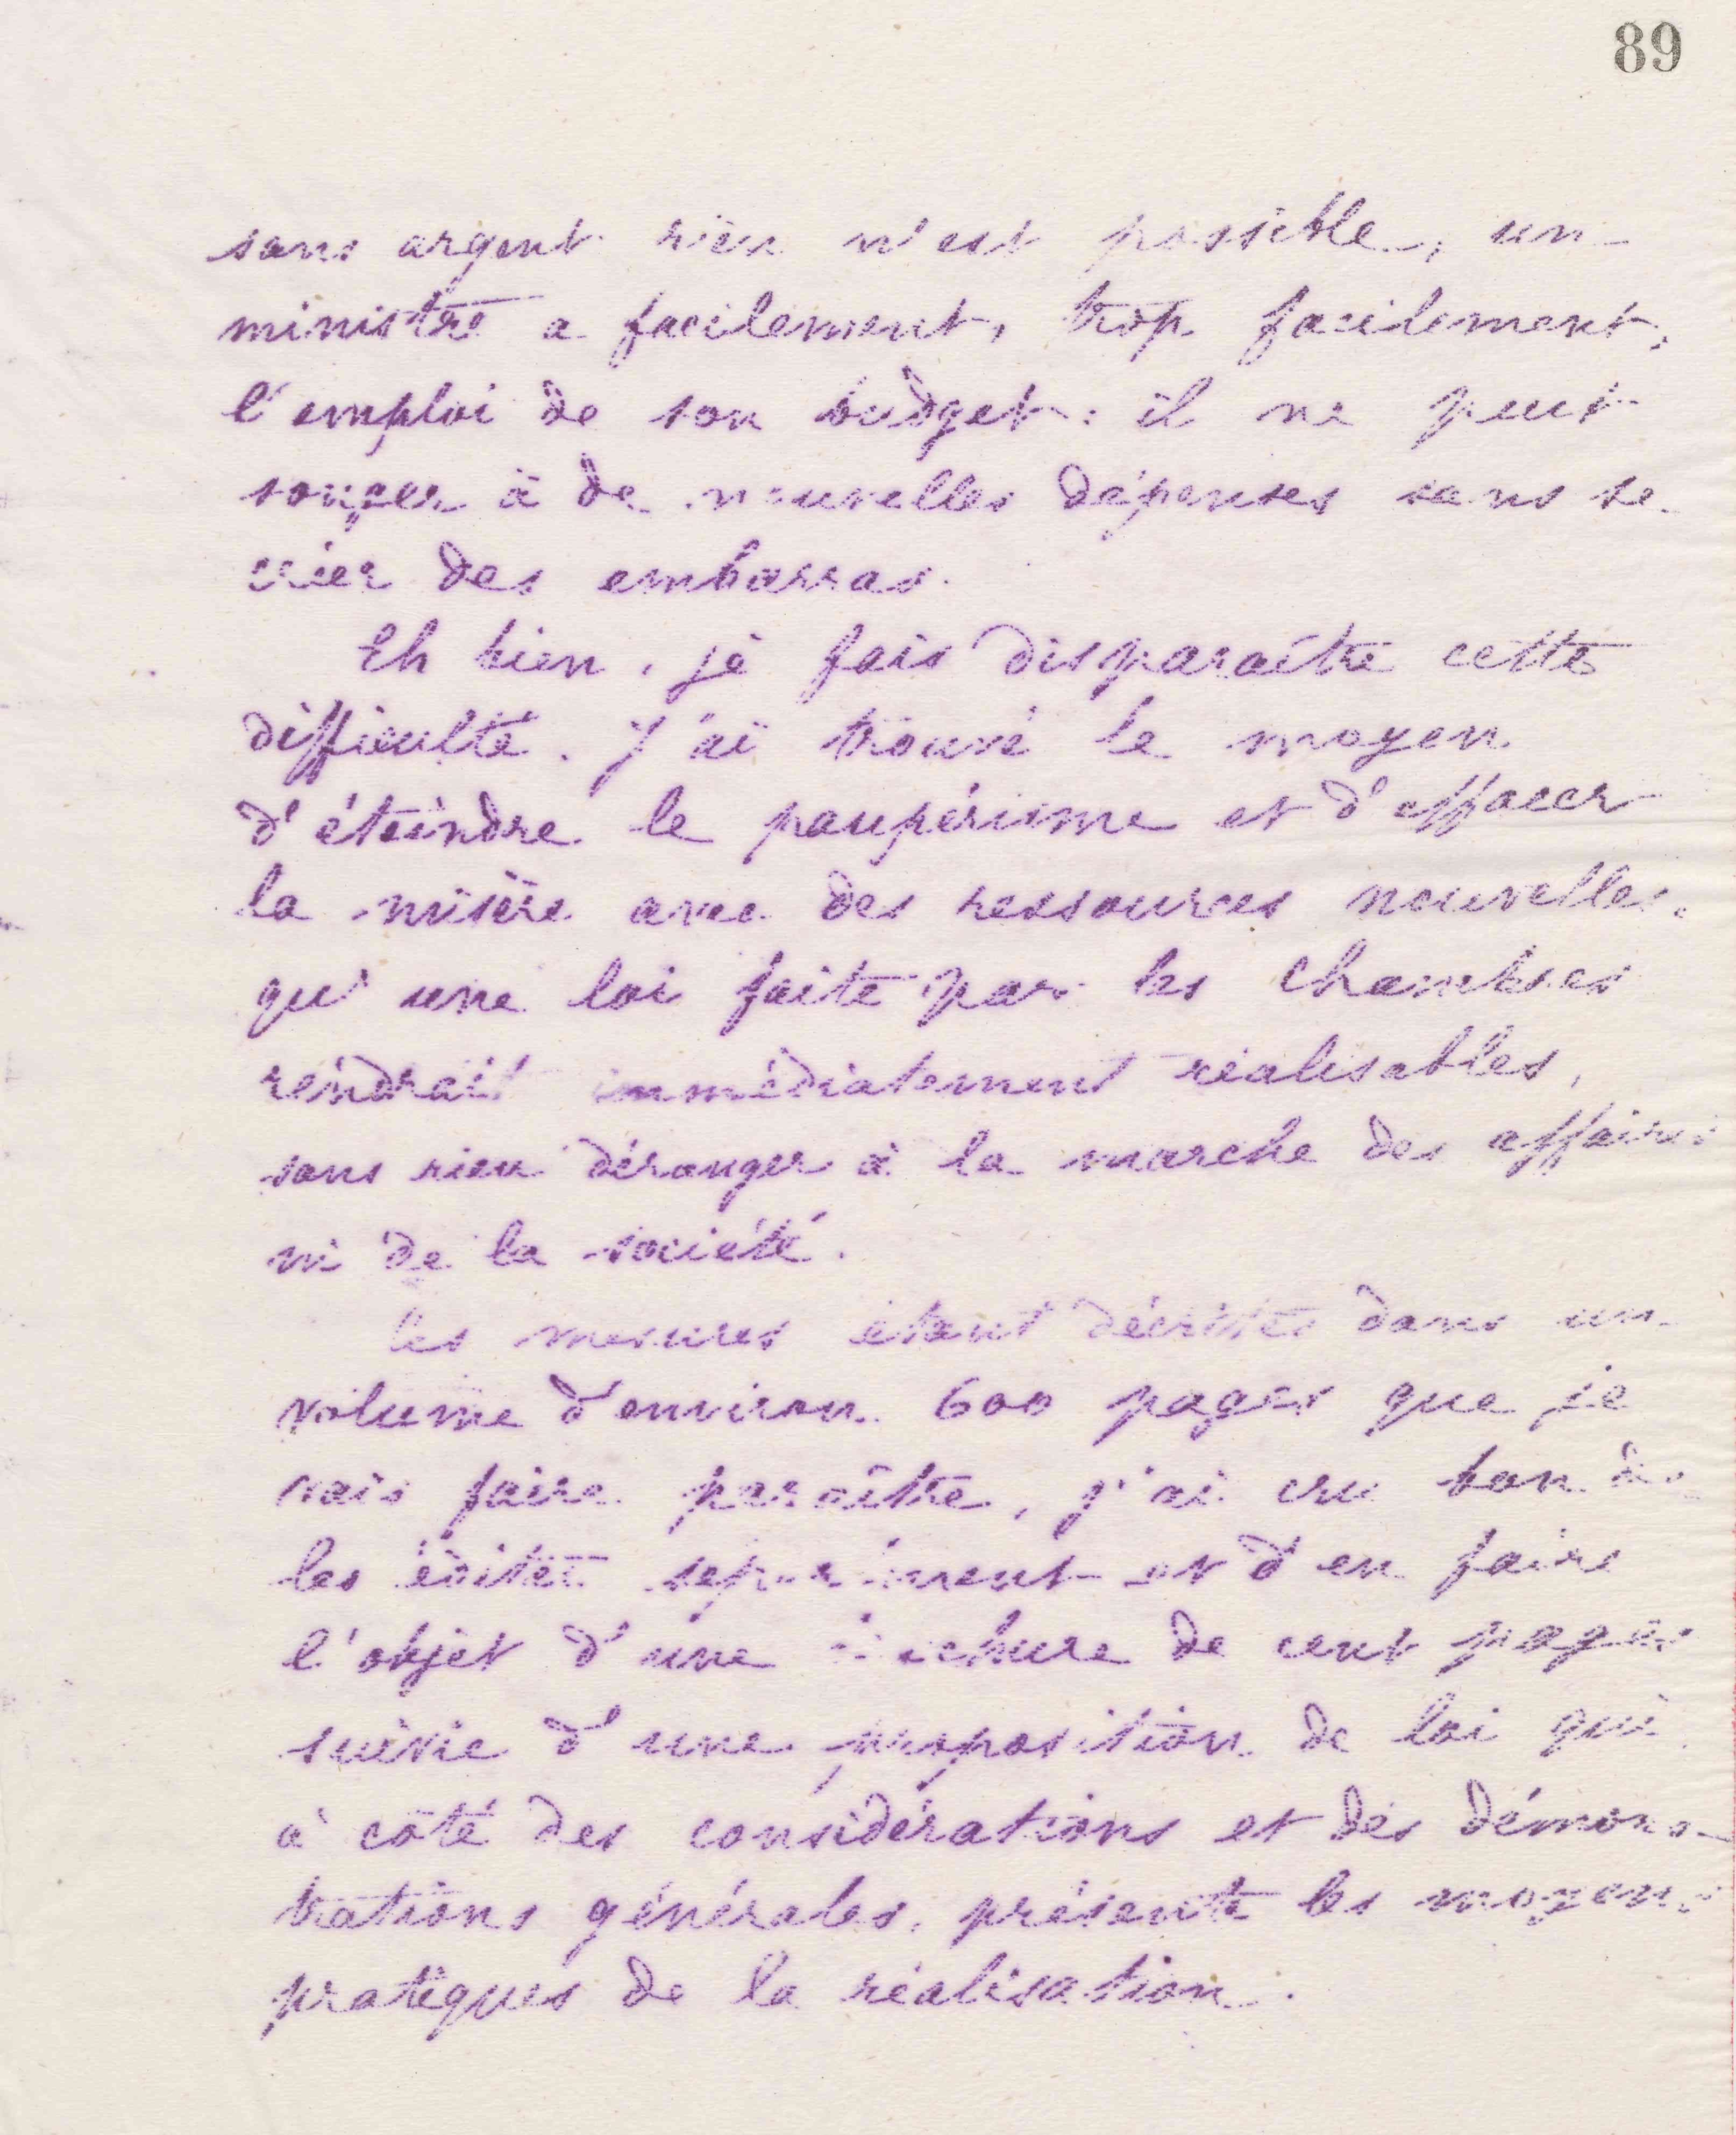 89
sans argent rien n'est possible, un
ministre a facilement, trop facilement,
l'emploi de son budget : il ne peut
songer à de nouvelles dépenses sans se
créer des embarras.
Eh bien, je fais disparaître cette
difficulté. J'ai trouvé le moyen
d'éteindre le paupérisme et d'effacer
la misère avec des ressources nouvelles,
qu'une loi faite par les Chambres
rendrait immédiatement réalisables,
sans rien déranger à la marche des affaires
ni de la société.
Les mesures étant décrites dans un
volume d'environ 600 pages que je
vais faire paraître, j'ai cru bon de
les éditer séparément et d'en faire
l'objet d'une brochure de cent pages
suivie d'une proposition de loi qui
à côté des considérations et des démons-
trations générales, présente les moyens
pratiques de la réalisation.